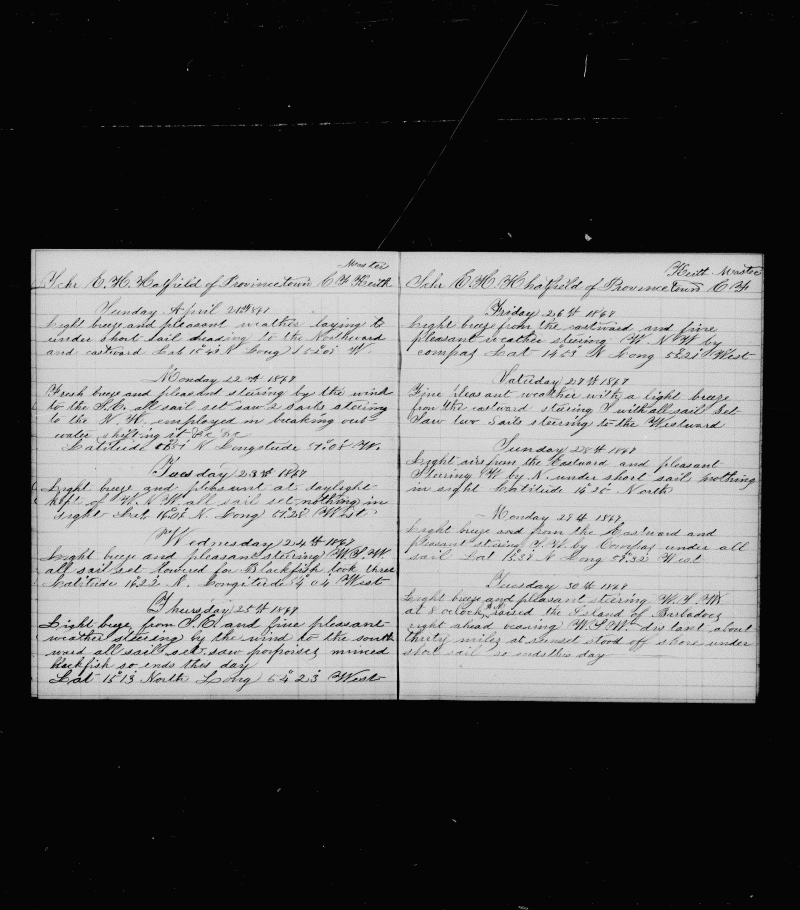 Master
Schr E. H. Hatfield of Provincetown C F Keith
Sunday April 21st 1867
Light breeze and pleasant weather laying to
under short sail heading to the Northward
and eastward Lat 15 43 N Long 50 W
Monday 22th 1867
Fresh breeze and pleasant steering by the wind
to the S.E. all sail set saw 2 sails steering
to the N. W. employed in breaking out
water shifting it &c &c
Latitude N Longitude W.
Tuesday 23th 1867
Light breeze and pleasant at daylight
kept of W. N W all sail set nothing in
sight Lat. 16 N. Long 51.28 West
Wednesday 24th 1867
Light breeze and pleasant steering W S W
all sail set lowered for Blackfish took three
Latitude N. Longitude 54 04 West
Thursday 25th 1867
Light breeze from S. E and fine pleasant
weather steering by the wind to the south
ward all sail set saw porpoises mixed
blackfish so ends this day
Lat 15 13 North Long 54 23 West
Keith Master
Schr E H Hhatfield of Provincetown C F
Friday 26th 1867
Light breeze from the eastward and fine
pleasant weather steering W. N W by
compas Lat 14 53 N Long 55 21 West
Saturday 27th 1867
Fine pleasant weather with a light breeze
from the eastward steering with all sail set
Saw two Sails steering to the Westward
Sunday 28th 1867
Light aires from the Eastward and pleasant
Steering W by N. under short sail nothing
in sight Latitude 14 25 North
Monday 29th 1867
Light breeze and from the Eastward and
pleasant steering by Compas under all
sail Lat N Long 58.32 West
Tuesday 30th 1867
Light breeze and pleasant steering W. S W
at 8 oclock raised the Island of Barbadoes
right ahead bearing W S W. distant about
thirty miles at sunset stood of shore under
short sail so ends this day